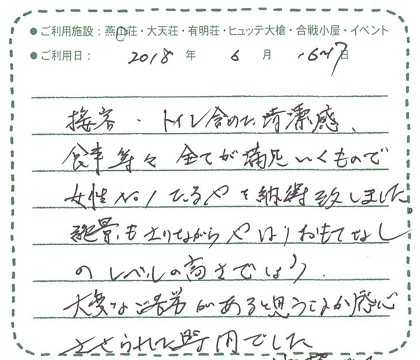 ●ご利用施設：燕山荘・大天荘・有明荘・ヒュッテ大槍・合戦小屋・イベント
●ご利用日： 2018 年 6 月 16-17 日
接客・トイレ含めた清潔感、
食事等々 全てが満足いくもので
女性No1たるやを納得致しました
絶景もさりながらやはりおもてなし
のレベルの高さでしょう。
大変なご苦労があると思うことが感心
させられた時間でした